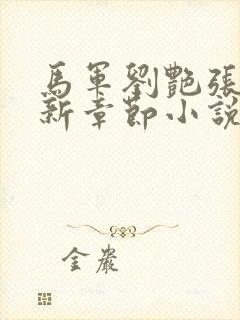 馬軍劉艷張
新章節小說
金嚴